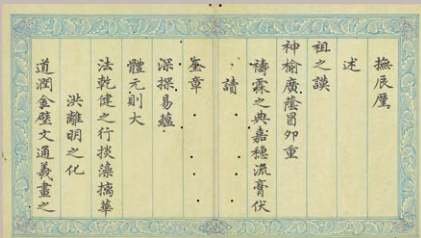 撫辰釐
述
祖之謨
神榆廣蔭冒卯重
禱霖之典嘉穗流膏伏
請
奎章
深探易蘊
體元則大
法乾健之行掞藻摛華
洪離明之化
道潤金璧文通義畫之